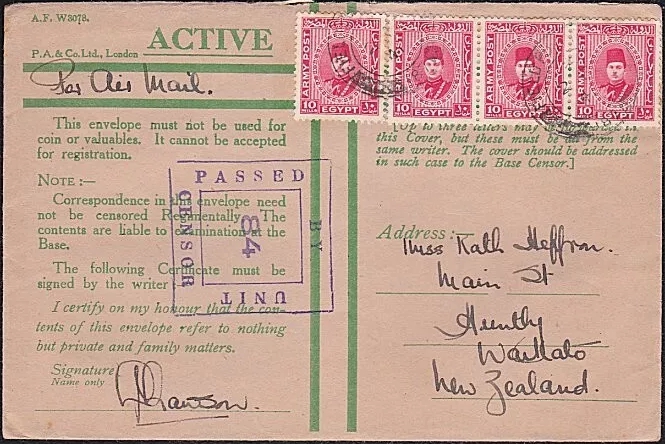 A.F. W3078.
P.A. & Co. Ltd., London
ACTIVE
Par Air Mail.
This envelope must not be used for
coin or valuables. It cannot be accepted
for registration.
NOTE:—
Correspondence in this envelope need
not be censored Regimentally. The
contents are liable to examination at the
Base.
The following Certificate must be
signed by the writer:
I certify on my honour that the con-
tents of this envelope refer to nothing
but private and family matters.
Signature
Name only
PASSED
BY
UNIT
CENSOR
84
ARMY POST
10 EGYPT
ARMY POST
10 EGYPT
ARMY POST
10 EGYPT
ARMY POST
10 EGYPT
[Up to three letters may be
this Cover, but these must be all from the
same writer. The cover should be addressed
in such case to the Base Censor.]
Address:—
Miss Kath Heffron.
Main St
Huntly
Waikato
New Zealand.